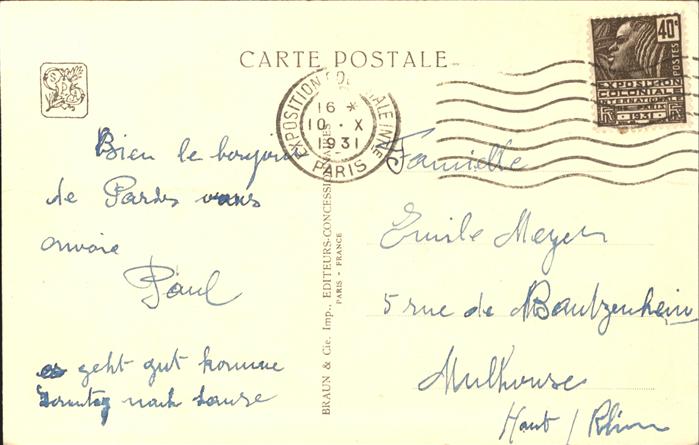 CARTE POSTALE
EXPOSITION COLONIALE INle
16 *
10 · X
1931
PARIS
40c
POSTES
EXPOSITION
COLONIALE
INTERNATIONALE
PARIS
1931
Bien le bonjour
de Pardis vous
anvoie
Paul
es geht gut komme
Sonntag nach hause
BRAUN & Cie. Imp., EDITEURS-CONCESSIONNAIRES
PARIS - FRANCE
Famielle
Emile Meyer
5 rue de Bantzenheim
Mulhouse
Haut / Rhin